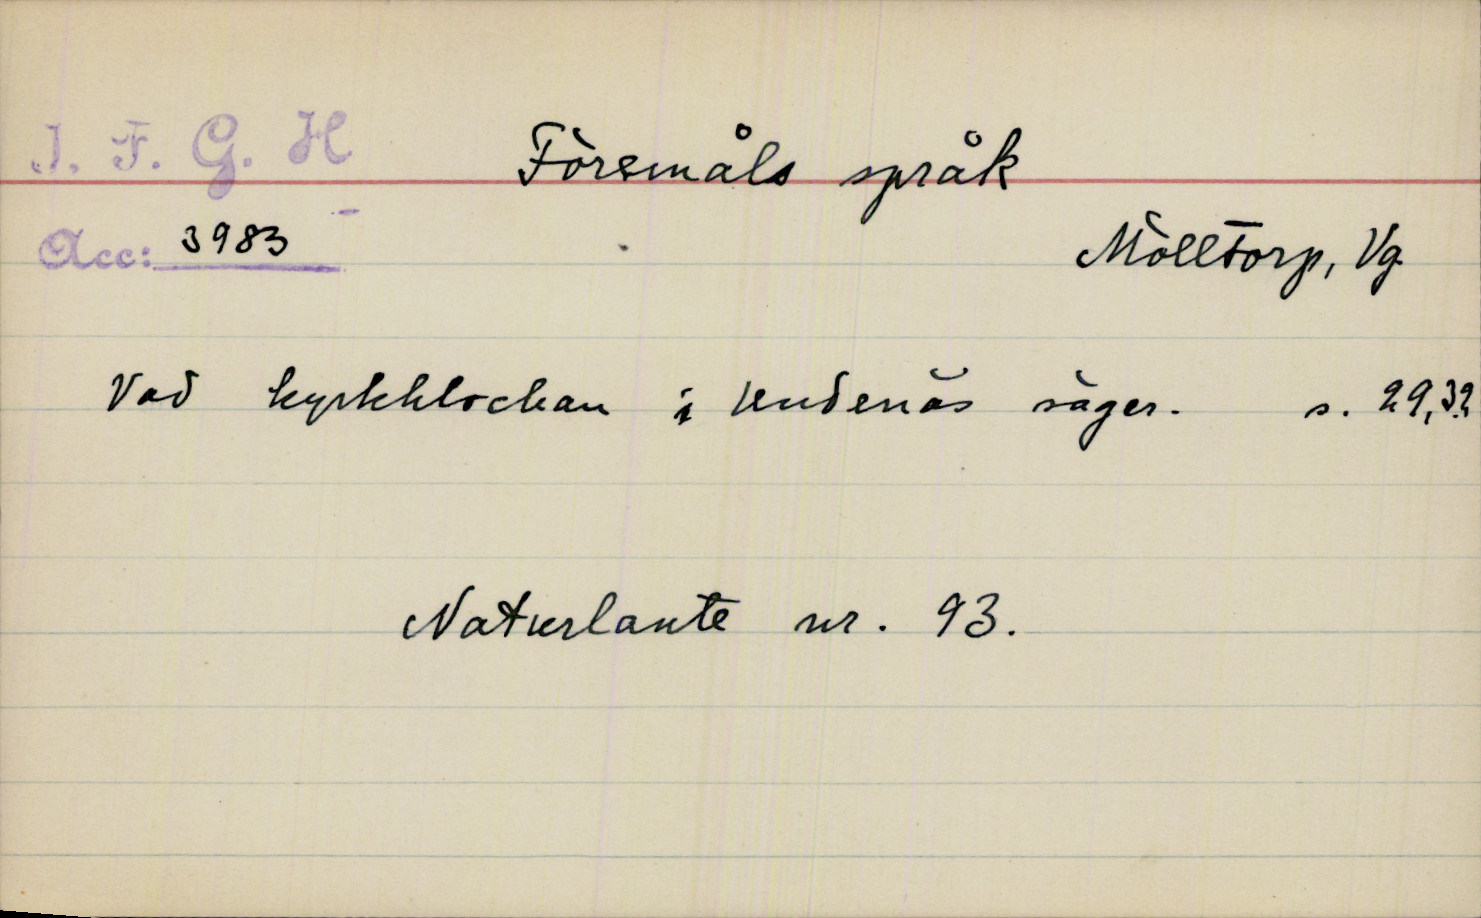 I. F. G. H.
Föremåls språk
Acc: 3983
Mölltorp, Vg
Vad kyrkklockan i Undenäs säger. s. 29, 32
Naturlaute nr. 93.